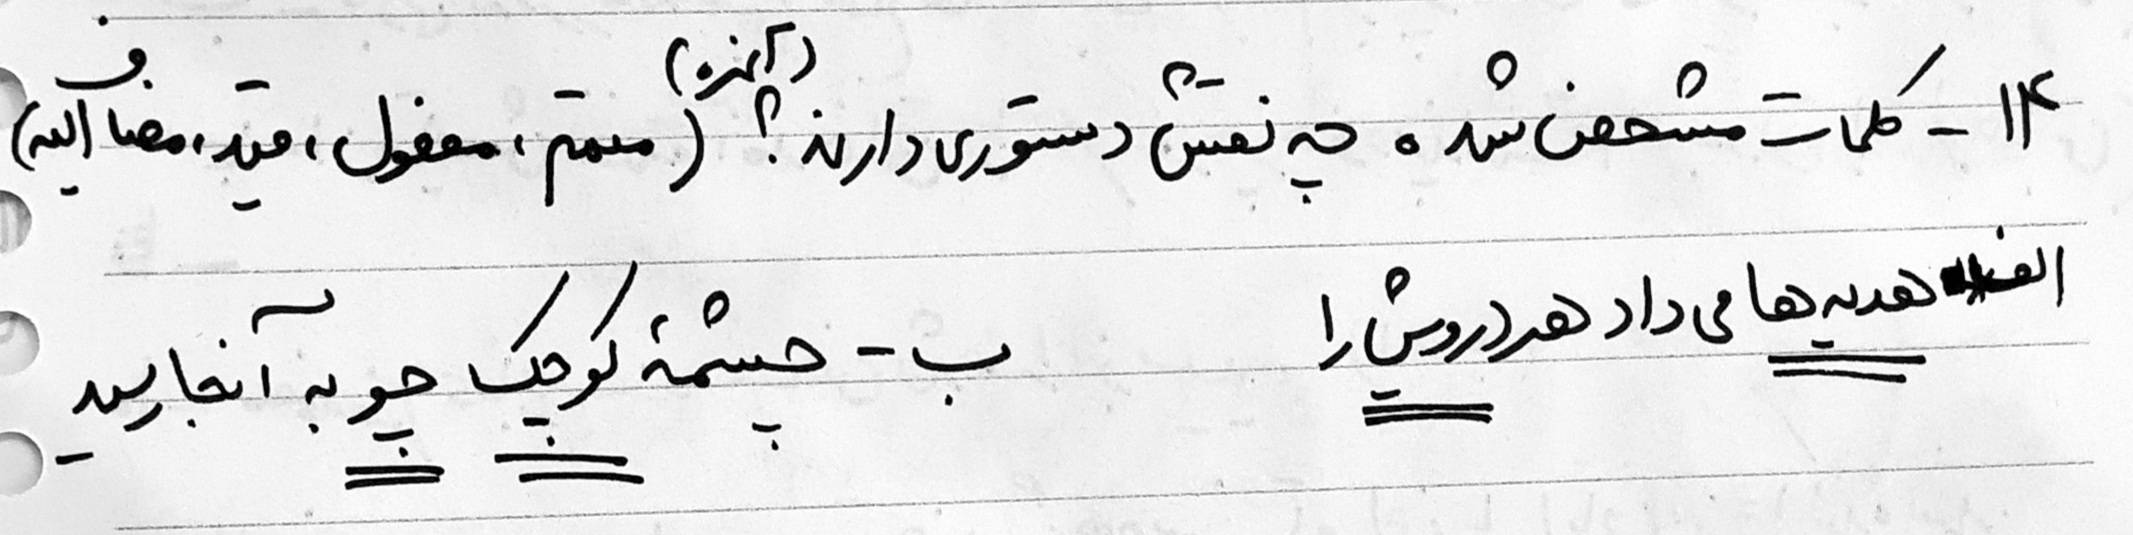 ۱۴- کلمات مشخص شده چه نقش دستوری دارند؟ (متمم، مفعول، قید، مضاف الیه)
الف هدیه ها می داد هر درویش را ب- چشمهٔ کوچک چو به آنجا رسید